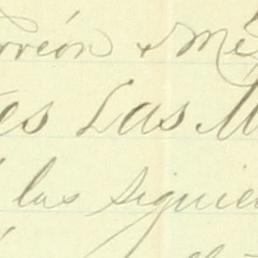 rreón & Mé
es Las M
las siguien